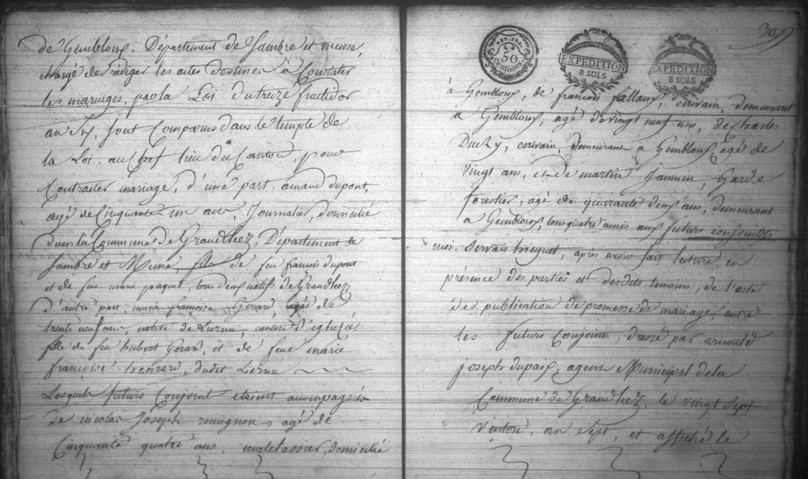 de Gembloux, Département de Sambre et meuse,
chargé de rédiger les actes destinés à Constater
les mariages, par la Loi du treize fructidor
an six, sont Comparus dans le temple de
la Loi, au chef lieu du Canton, pour
Contracter mariage, d'une part, amand dupont,
agé de Cinquante un ans, Journalier, domicilié
dans la Commune de Grandleez, Département de
Sambre et Meuse, fils de feu francois dupont
et de feue marie paquet, tous deux natifs de Grandleez
d'autre part, marie francoise Gérard, agée de
trente neuf ans, native de Liernu, canton d'eghezée
fille de feu hubert Gérard, et de feue marie
francoise henrard, dudit Liernu
Lesquels futurs Conjoint etoient accompagnés
de nicolas Joseph, agé de
Cinquante quatre ans, domicilié
309
50
Centimes
EXPEDITION
8 SOLS
EXPEDITION
8 SOLS
à Gembloux, de francois, ecrivain, demeurant
a Gembloux, agé de vingt neuf ans, de Charles
ecrivain, demeurant a Gembloux, agé de
vingt ans, et de martin Garde
forestier, agé de quarante deux ans, demeurant
a Gembloux, tous quatre amis aux futurs conjoints
moi Servais, après avoir fait lecture en
présence des parties et desdits temoins, de l'acte
de publication de promesse de mariage, entre
les futurs Conjoins, dressé par arnould
joseph, agent Municipal de la
Commune de Grandleez, le vingt sept
Ventose, an sept, et affiché le